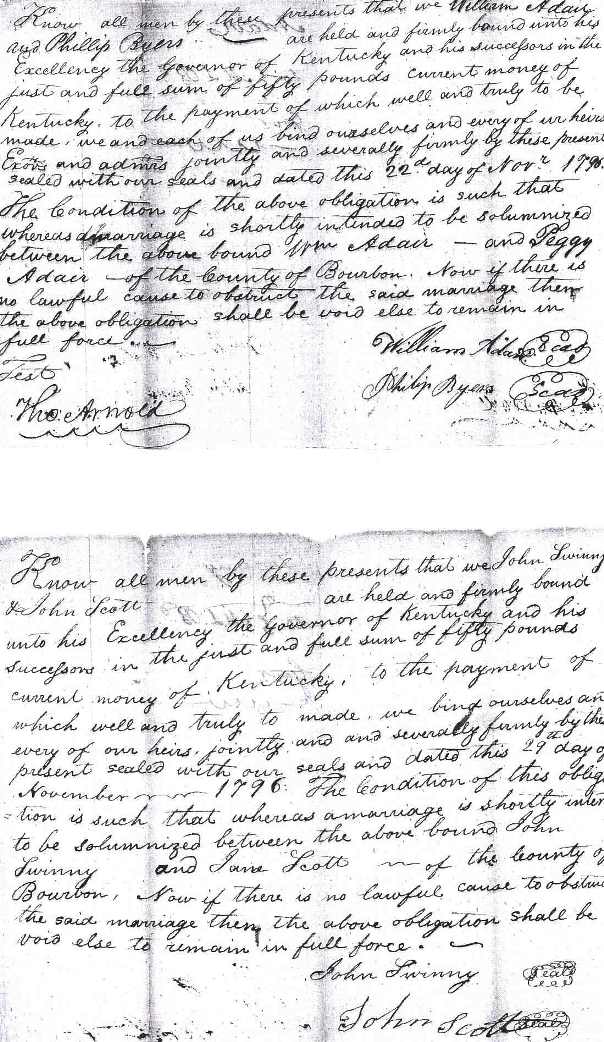 Know all men by these presents that we William Adair
and Phillip Byers are held and firmly bound unto his
Excellency the Governor of Kentucky and his successors in the
just and full sum of fifty pounds current money of
Kentucky. to the payment of which well and truly to be
made, we and each of us bind ourselves and every of ur heirs
Exors and admrs jointly and severally firmly by these present
sealed with our seals and dated this 22d day of Novr 1796.
The Condition of the above obligation is such that
whereas a marriage is shortly intended to be solumnized
between the above bound Wm Adair — and Peggy
Adair — of the County of Bourbon. Now if there is
no lawful cause to obstruct the said marriage then
the above obligation shall be void else to remain in
full force.
Test
William Adair Seal
Philip Byers Seal
Tho. Arnold
Know all men by these presents that we John Swinny
& John Scott are held and firmly bound
unto his Excellency the Governor of Kentucky and his
successors in the just and full sum of fifty pounds
current money of Kentucky, to the payment of
which well and truly to made. we bind ourselves an
every of our heirs, jointly and and severally firmly by the
present sealed with our seals and dated this 29th day of
November 1796. The Condition of this obliga
=tion is such that whereas a marriage is shortly inten
to be solumnized between the above bound John
Swinny and Jane Scott — of the County of
Bourbon, Now if there is no lawful cause to obstruc
the said marriage then the above obligation shall be
void else to remain in full force.
John Swinny Seal
John Scott Seal